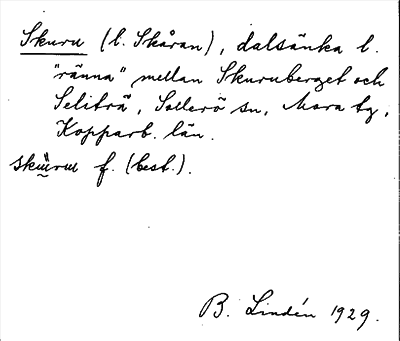 Skuru (l. Skåran), dalsänka l.
"ränna" mellan Skuruberget och
Seliträ, Sollerö sn, Mora tg,
Kopparb. län.
f. (best.).
B. Lindén 1929.